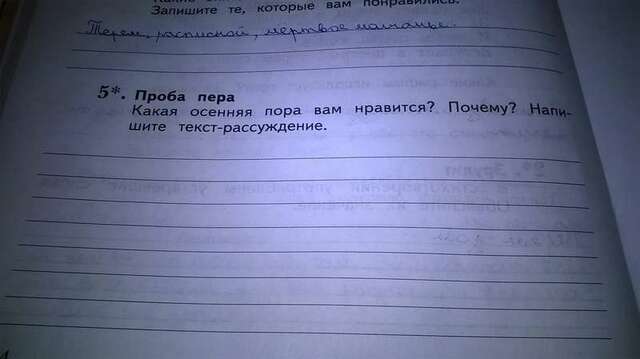 Запишите те, которые вам понравились.
Терем, расписной, мертвое молчанье.
5*. Проба пера
Какая осенняя пора вам нравится? Почему? Напи-
шите текст-рассуждение.